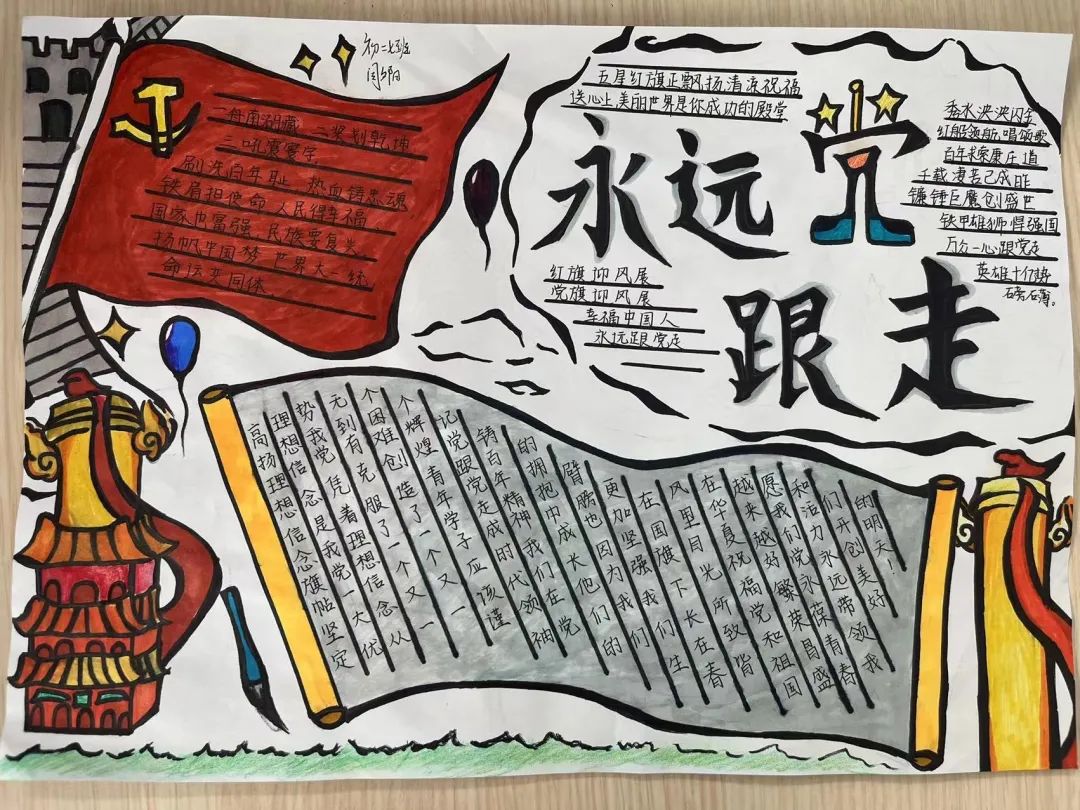 初二七班
一舟南湖藏 二桨划乾坤
三吼震寰宇
刷洗百年耻 热血铸忠魂
铁肩担使命 人民得幸福
国家也富强 民族要复兴
扬帆中国梦 世界大一统
命运共同体
五星红旗正飘扬清流祝福
送心上美丽世界是你成功的殿堂
永远党
跟走
秀水泱泱闪金
红船领航唱颂歌
百年求索康庄道
千载凄苦已成昨
镰锤巨魔创盛世
铁甲雄狮悍强国
万众一心跟党走
英雄十亿势
磅礴。
红旗仰风展
党旗仰风展
幸福中国人
永远跟党走
高扬理想信念旗帜坚定
理想信念是我党一大优
势我党凭着理想信念从
元到有克服了一个又一
个困难创造了一个又一
个辉煌青年学子应该谨
记党跟党走成时代领袖
铸百年精神我们在党
的拥抱中成长他们的
臂膀也因为我们
更加坚强我们生
在国旗下长在春
风里目光所致皆
在华夏祝福党和祖国
越来越好繁荣昌盛
愿我们党永葆青春
和活力永远带领我
们开创美好
的明天！